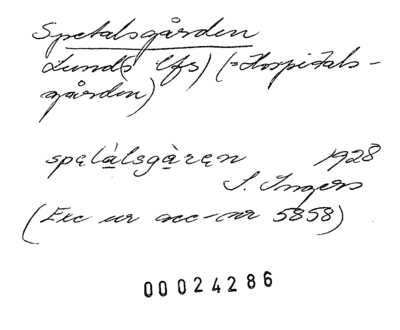 Spetalsgården
Lund(s lfs) (=Hospitals-
gården)
spęlàlsgàręn 1928
I. Ingers
(Exc ur acc-nr 5858)
00024286